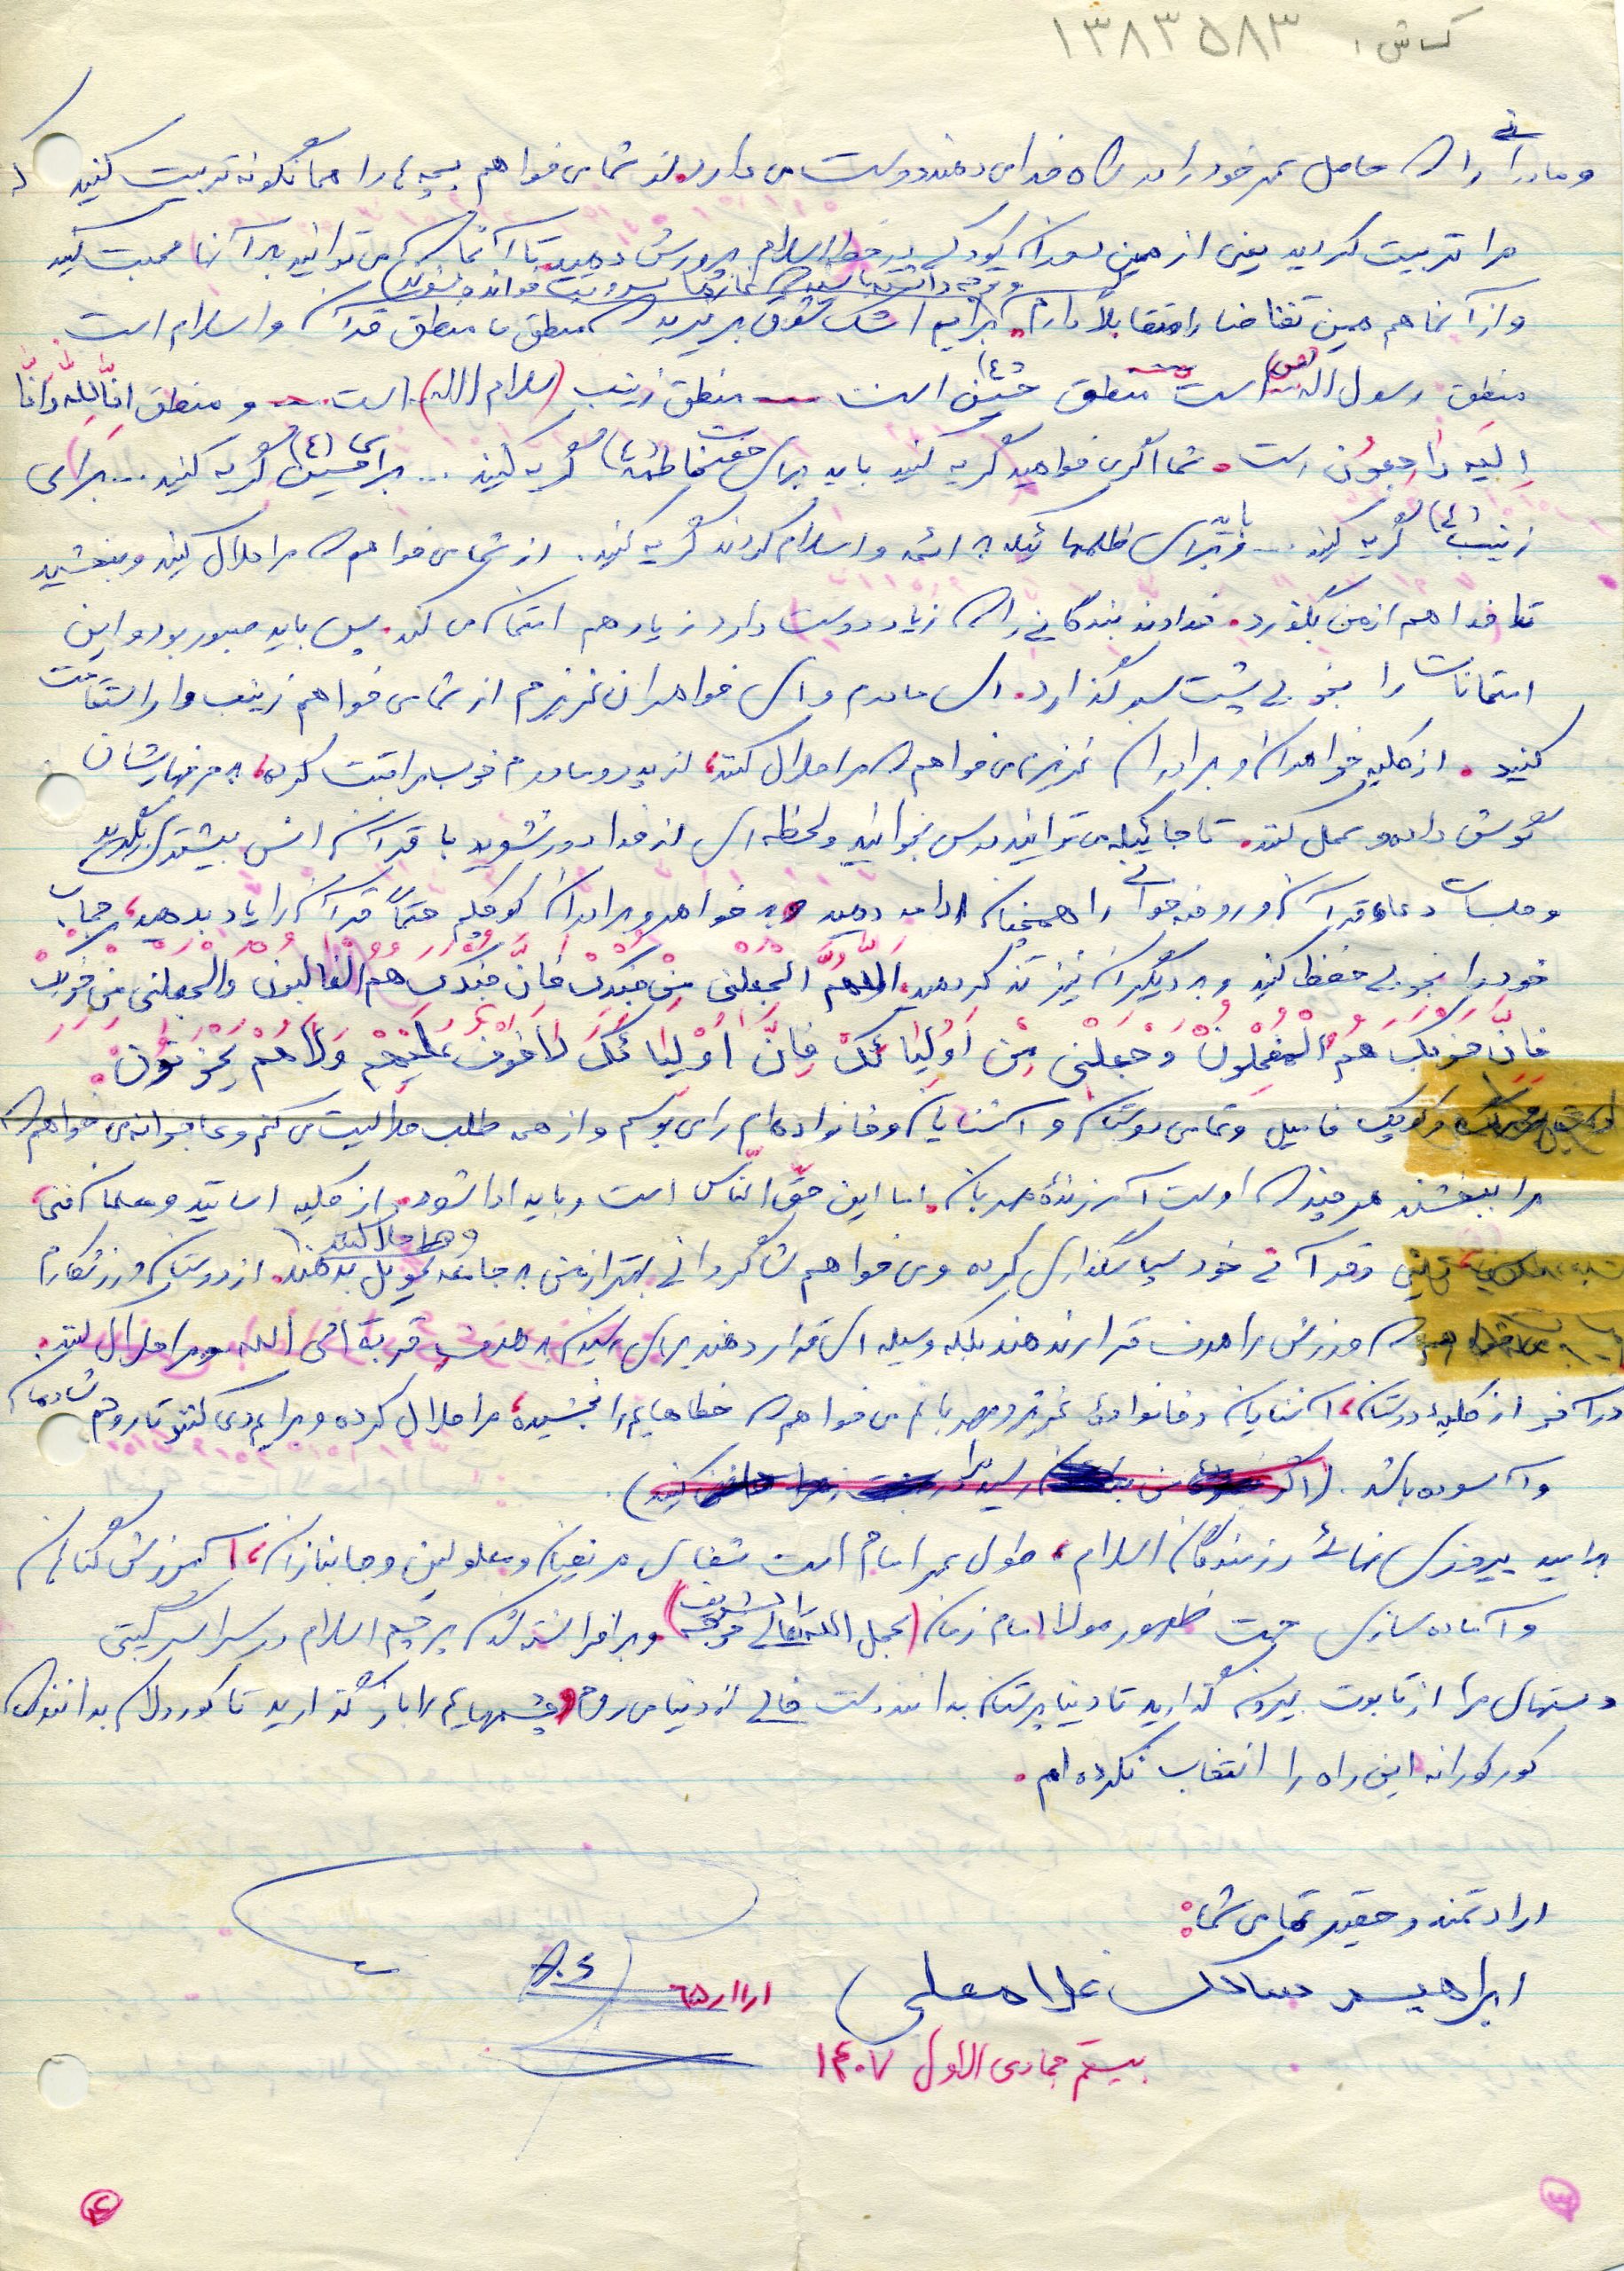 ۱۳۸۳۵۸۳
و مادرانی را که حاصل عمر خود را در راه خدا می دهند دوست می دارد. از شما می خواهم بچه ها را همانگونه تربیت کنید که
مرا تربیت کردید یعنی از همین دوران کودکی در خط اسلام پرورش دهید تا آنجا که می توانید به آنها محبت کنید
و از آنها هم همین تقاضا را متقابلاً دارم. برایم اشک شوق بریزید که منطق ما منطق قرآن و اسلام است
منطق رسول الله (ص) است منطق حسین (ع) است — منطق زینب (سلام الله) است — و منطق اِنّا لِلّه وَ اِنّا
اِلَیْهِ راجِعُون است. شما اگر می خواهید گریه کنید باید برای حضرت فاطمه (س) گریه کنید ... برای حسین (ع) گریه کنید ... برای
زینب (س) گریه کنید ... و باید برای ظلمهائیکه به ائمه و اسلام کردند گریه کنید. از شما می خواهم که مرا حلال کنید و ببخشید
تا خدا هم از من بگذرد. خداوند بندگانی را که زیاد دوست دارد زیاد هم امتحان می کند. پس باید صبور بود و این
امتحانات را بخوبی پشت سر گذارد. ای مادرم و ای خواهران عزیزم از شما می خواهم زینب وار استقامت
کنید. از کلیه خواهران و برادران عزیزم می خواهم که مرا حلال کنند، از پدر و مادرم خوب مراقبت کرده، به حرفهایشان
گوش داده و عمل کنند. تا جائیکه می توانید درس بخوانید و لحظه ای از خدا دور نشوید با قرآن انس بیشتری بگیرید
و جلسات دعا، قرآن و روضه خوانی را همچنان ادامه دهید و به خواهر و برادران کوچکم حتماً قرآن را یاد بدهید، حجاب
خود را بخوبی حفظ کنید و به دیگران نیز تذکر دهید. اَللّهُمَّ اجْعَلْنی مِنْ جُنْدِکَ فَاِنَّ جُنْدَکَ هُمُ الْغالِبُونَ وَاجْعَلْنی مِنْ حِزْبِکَ
فَاِنَّ حِزْبَکَ هُمُ الْمُفْلِحُونَ وَجْعَلْنی مِنْ اَوْلِیائِکَ فَاِنَّ اَوْلِیائَکَ لاخَوْفٌ عَلَیْهِمْ وَلاهُمْ یَحْزَنُونَ.
و کوچک فامیل و تمامی دوستان و آشنایان و خانواده ام را می بوسم و از همه طلب حلالیت می کنم و عاجزانه می خواهم که
مرا ببخشند هر چند که اوست آمرزندهٔ مهربان. اما این حقّ النّاس است و باید ادا شود. از کلیه اساتید و معلمان فنی،
و قرآنی خود سپاسگذاری کرده و می خواهم شاگردانی بهتر از من به جامعه تحویل بدهند و مرا حلال کنند. از دوستان ورزشکارم
که ورزش را هدف قرار ندهند بلکه وسیله ای قرار دهند برای رسیدن به هدف قربة الی الله و مرا حلال کنند.
در آخر از کلیهٔ دوستان، آشنایان و خانوادهٔ عزیز و مهربانم می خواهم که خطاهایم را بخشیده، مرا حلال کرده و برایم دعا کنند تا روحم شادمان
و آسوده باشد.
به امید پیروزی نهائی رزمندگان اسلام، طول عمر امام امت شفای مریضان و معلولین و جانبازان، آمرزش گناهان
و آماده سازی جهت ظهور مولا امام زمان (عجل الله تعالی فرجه الشریف) و برافراشته شدن پرچم اسلام در سراسر گیتی
دستهای مرا از تابوت بیرون گذارید تا دنیا پرستان بدانند دست خالی از دنیا می روم و چشمهایم را باز گذارید تا کوردلان بدانند که
کورکورانه این راه را انتخاب نکرده ام.
ارادتمند و حقیر تمامی شما:
ابراهیم سالک غلامعلی
۶۵/۱۱/۱
بیستم جمادی الاول ۱۴۰۷
۳
۴